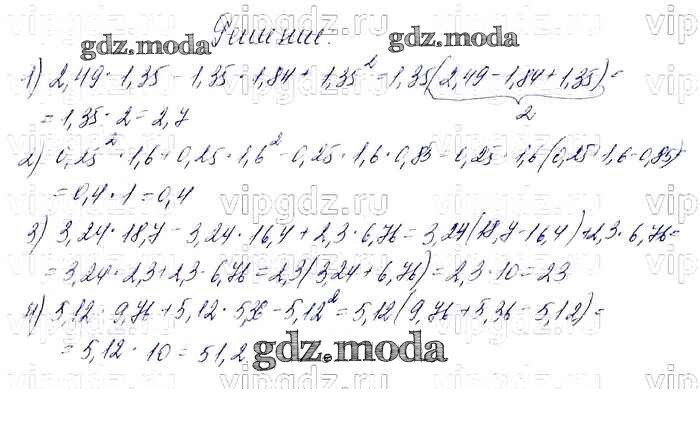 Решение.
1) 2,49 · 1,35 - 1,35 · 1,84 + 1,35² = 1,35(2,49 - 1,84 + 1,35) =
2
= 1,35 · 2 = 2,7
2) 0,25² · 1,6 + 0,25 · 1,6² - 0,25 · 1,6 · 0,85 = 0,25 · 1,6(0,25 + 1,6 - 0,85)
= 0,4 · 1 = 0,4
3) 3,24 · 18,7 - 3,24 · 16,4 + 2,3 · 6,76 = 3,24(18,7 - 16,4) + 2,3 · 6,76 =
= 3,24 · 2,3 + 2,3 · 6,76 = 2,3(3,24 + 6,76) = 2,3 · 10 = 23
4) 5,12 · 9,76 + 5,12 · 5,36 - 5,12² = 5,12(9,76 + 5,36 - 5,12) =
= 5,12 · 10 = 51,2
gdz.moda
gdz.moda
gdz.moda
vipgdz.ru
vipgdz.ru
vipgdz.ru
vipgdz.ru
vipgdz.ru
vipgdz.ru
vipgdz.ru
vipgdz.ru
vipgdz.ru
vipgdz.ru